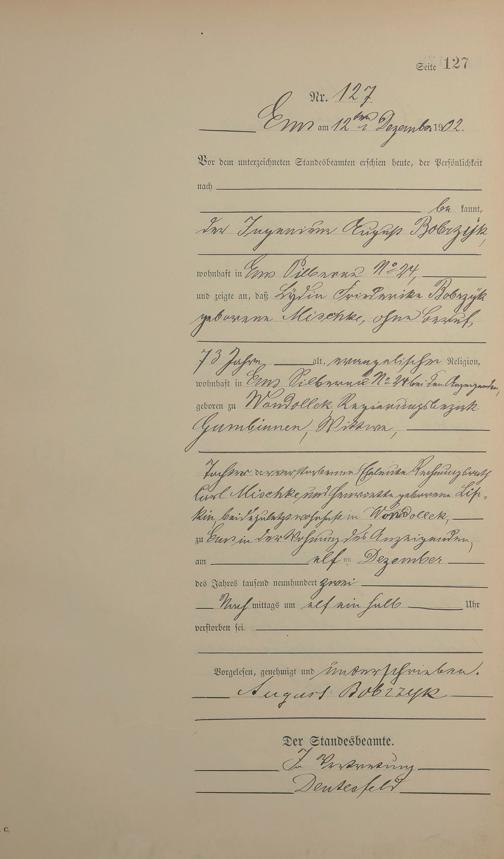 Seite 127
Nr. 127
Ems am 12ten Dezember 1902.
Vor dem unterzeichneten Standesbeamten erschien heute, der Persönlichkeit
nach
be kannt,
der Ingenieur August Bobrzyk,
wohnhaft in Ems Silberau No 24,
und zeigte an, daß Lydia Friederike Bobrzyk
geborene Mischke, ohne Beruf,
73 Jahre alt, evangelischer Religion,
wohnhaft in Ems Silberau No 24 bei dem Anzeigenden,
geboren zu Wondollek, Regierungsbezirk
Gumbinnen, Wittwe,
Tochter der verstorbenen Eheleute Rechnungsrath
Carl Mischke und Henriette geborene Lip-
kin beide zuletzt wohnhaft in Wondolleck,
zu Ems in der Wohnung des Anzeigenden,
am elf ten Dezember
des Jahres tausend neunhundert zwei
Nach mittags um elf ein halb Uhr
verstorben sei.
Vorgelesen, genehmigt und unterschrieben.
August Bobrzyk
Der Standesbeamte.
In Vertretung
C.